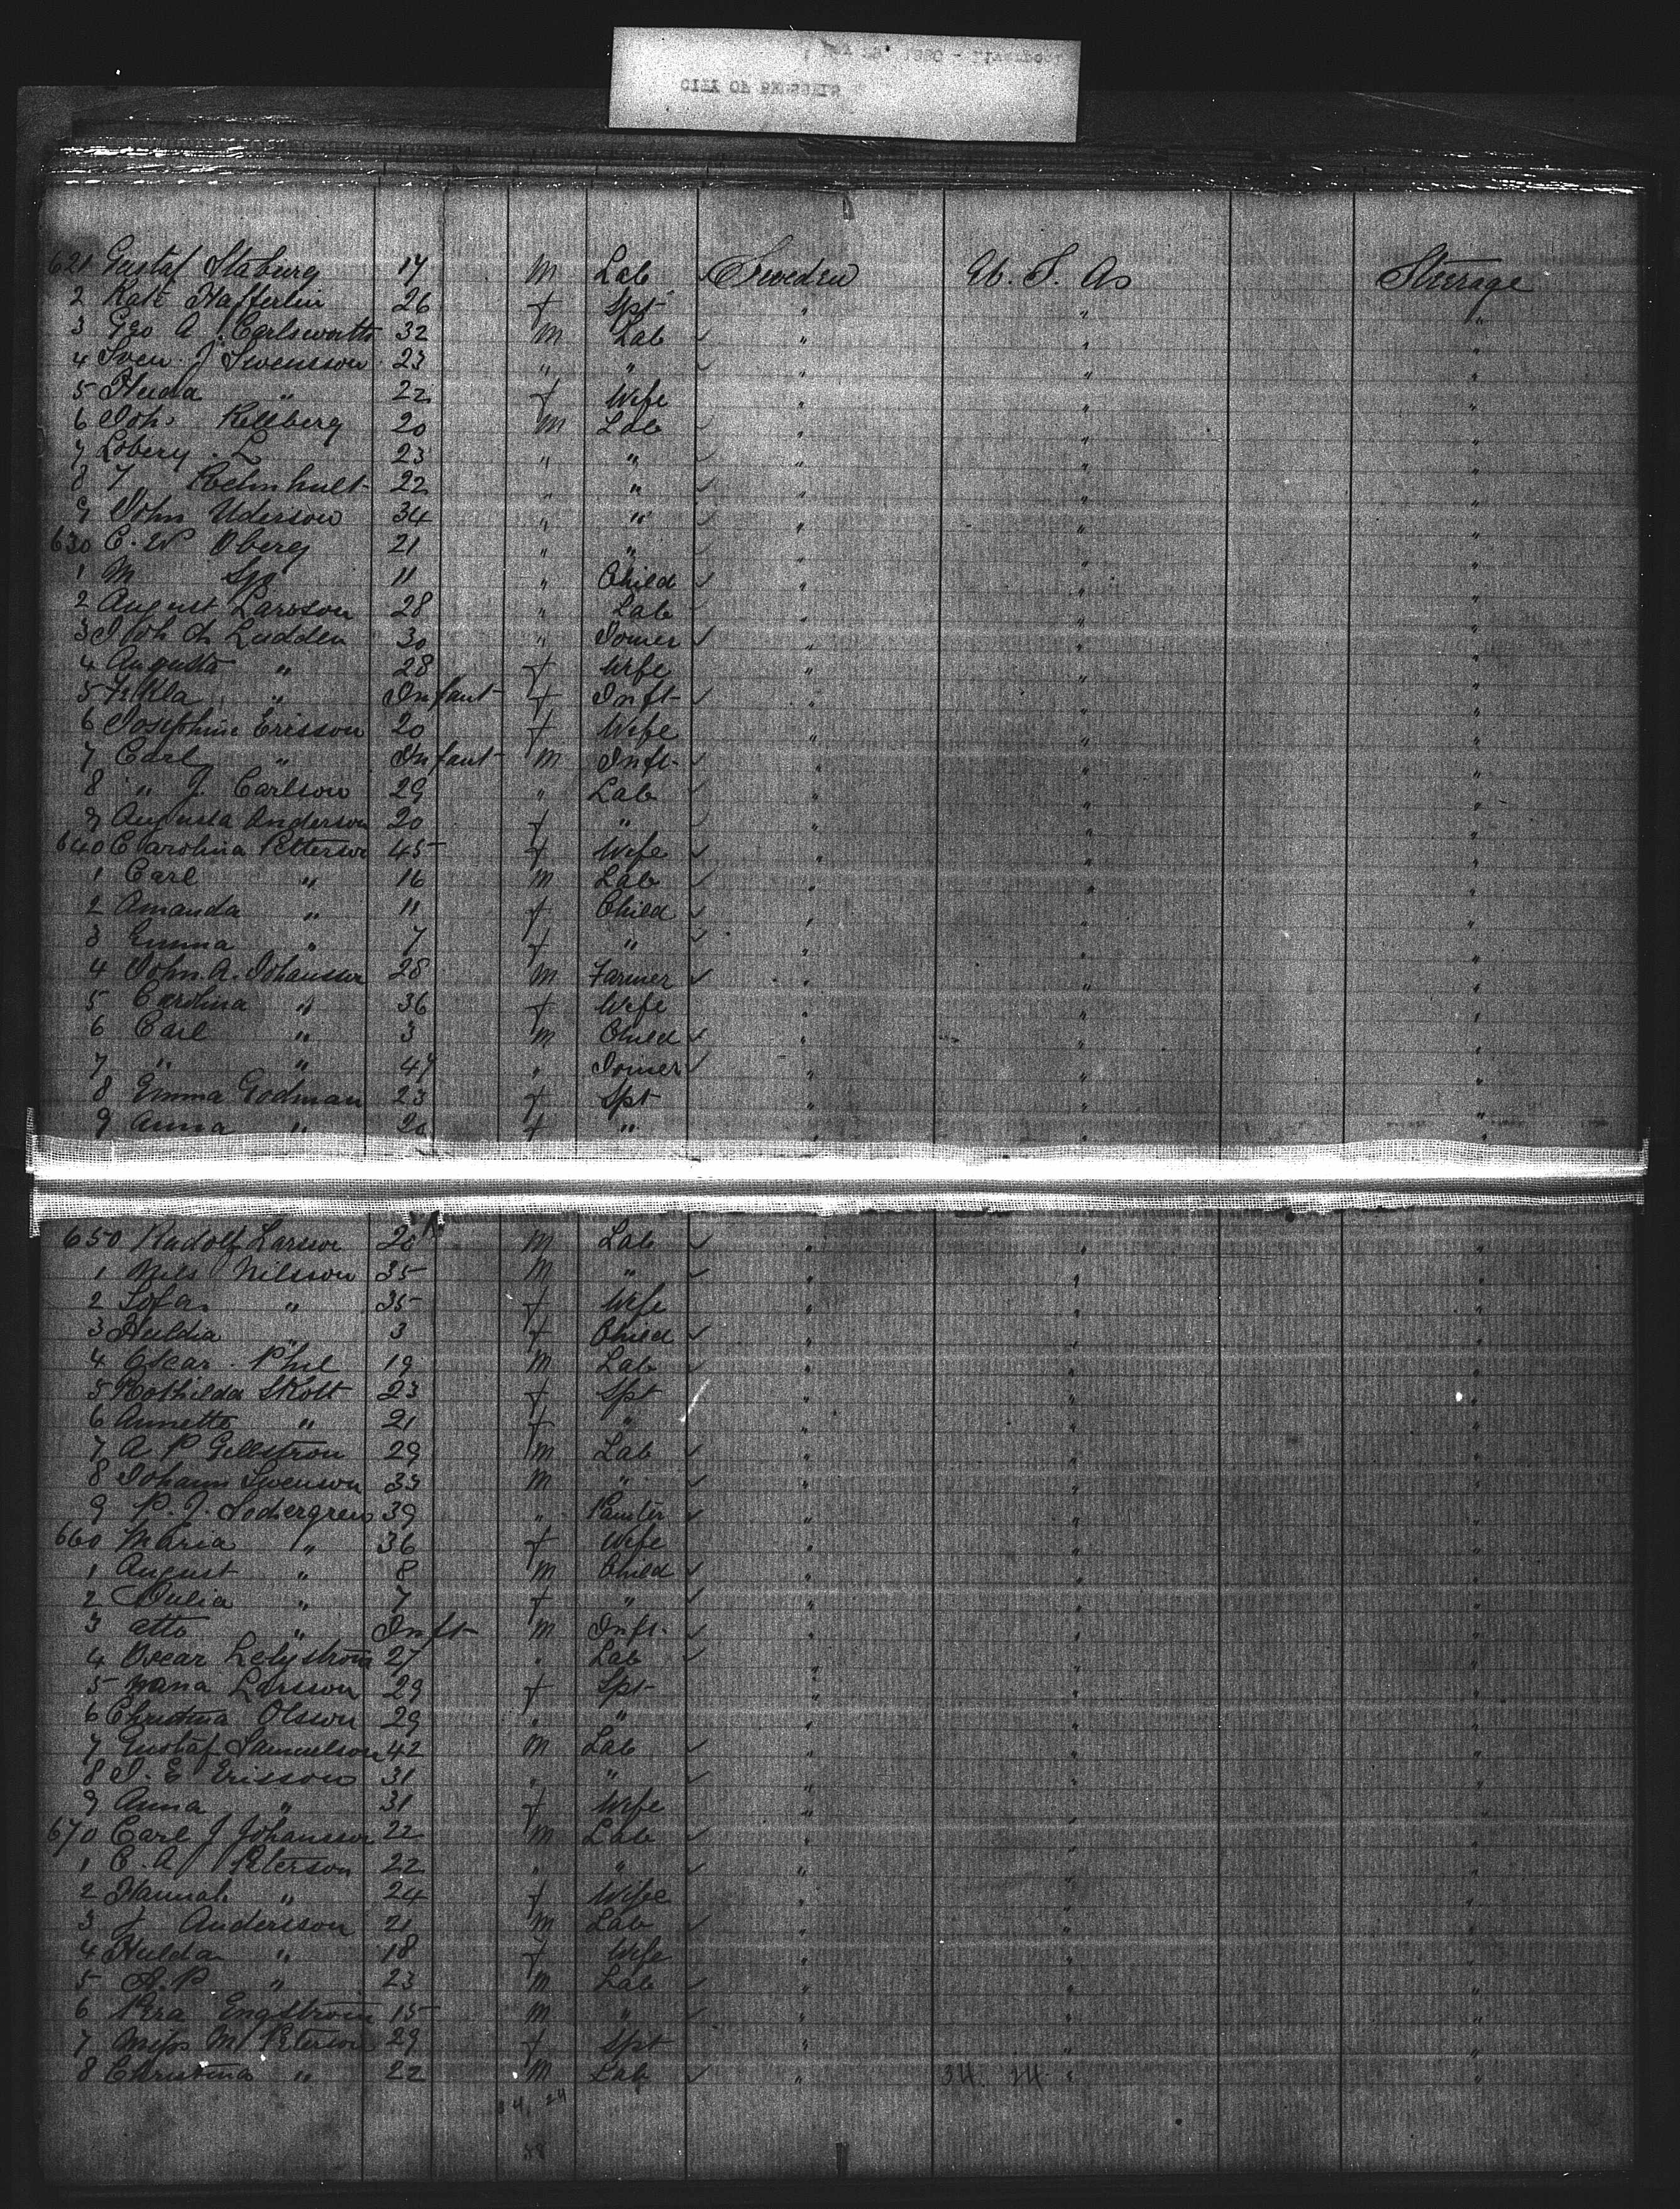 621 Gustaf Staburg 17 M Lab ✓ Sweden U. S. As Steerage
2 Kate Hafferlin 26 f Spt " " "
3 Geo A. Carlsworth 32 M Lab ✓ " " "
4 Sven J Swensson 23 " " ✓ " " "
5 Huda " 22 f Wife " " "
6 Joh. Kellberg 20 M Lab ✓ " " "
7 Lobery . L 23 " " ✓ " " "
8 Helmhult 22 " " ✓ " " "
9 John Uderson 34 " " ✓ " " "
630 C. W Oberg 21 " " ✓ " " "
1 M 11 " Child ✓ " " "
2 August Larsson 28 " Lab ✓ " " "
3 Joh Ch Ludden 30 " Joiner ✓ " " "
4 Augusta " 28 f Wife " " "
5 " Infant f Inft ✓ " " "
6 Josephine Ericsson 20 f Wife " " "
7 Carl " Infant M Inft ✓ " " "
8 " J. Carlson 29 " Lab ✓ " " "
9 Augusta Anderson 20 f " ✓ " " "
640 Carolina Petterson 45 f Wife ✓ " " "
1 Carl " 16 M Lab ✓ " " "
2 Amanda " 11 f Child ✓ " " "
3 Emma " 7 f " ✓ " " "
4 John A. Johansson 28 M Farmer ✓ " " "
5 Carolina " 36 f Wife " " "
6 Carl " 3 M Child ✓ " " "
7 " " 47 " Joiner ✓ " " "
8 Emma Godman 23 f Spt " " "
9 Anna " 20 f " " " "
650 Rudolf Larsson 20 M Lab ✓ " " "
1 Nils Nilsson 35 M " ✓ " " "
2 Sofa " 35 f Wife " " "
3 Huldia " 3 f Child ✓ " " "
4 Oscar . Phil 19 M Lab ✓ " " "
5 Mothilda Skott 23 f Spt " " "
6 Annette " 21 f " " " "
7 A P Gellstrom 29 M Lab ✓ " " "
8 Johann Swenson 33 M " ✓ " " "
9 P. J. Sodergren 39 " Painter ✓ " " "
660 Maria " 36 f Wife " " "
1 August " 8 M Child ✓ " " "
2 Julia " 7 f " ✓ " " "
3 Otto " Inft M Inft ✓ " " "
4 Oscar 27 " Lab ✓ " " "
5 Larsson 29 f Spt " " "
6 Christina Olsson 29 " " " " "
7 Gustaf Samuelson 42 M Lab ✓ " " "
8 J. E Ericsson 31 " " ✓ " " "
9 Anna " 31 f Wife " " "
670 Carl J Johansson 22 M Lab ✓ " " "
1 C. A Peterson 22 " " ✓ " " "
2 Hannah " 24 f Wife " " "
3 J Andersson 21 M Lab ✓ " " "
4 Hulda " 18 f Wife " " "
5 A. P " 23 M Lab ✓ " " "
6 Engstrom 15 M " ✓ " " "
7 Miss M Peterson 29 f Spt " " "
8 Christina " 22 M Lab ✓ " 34. 24 " "
34. 24
58